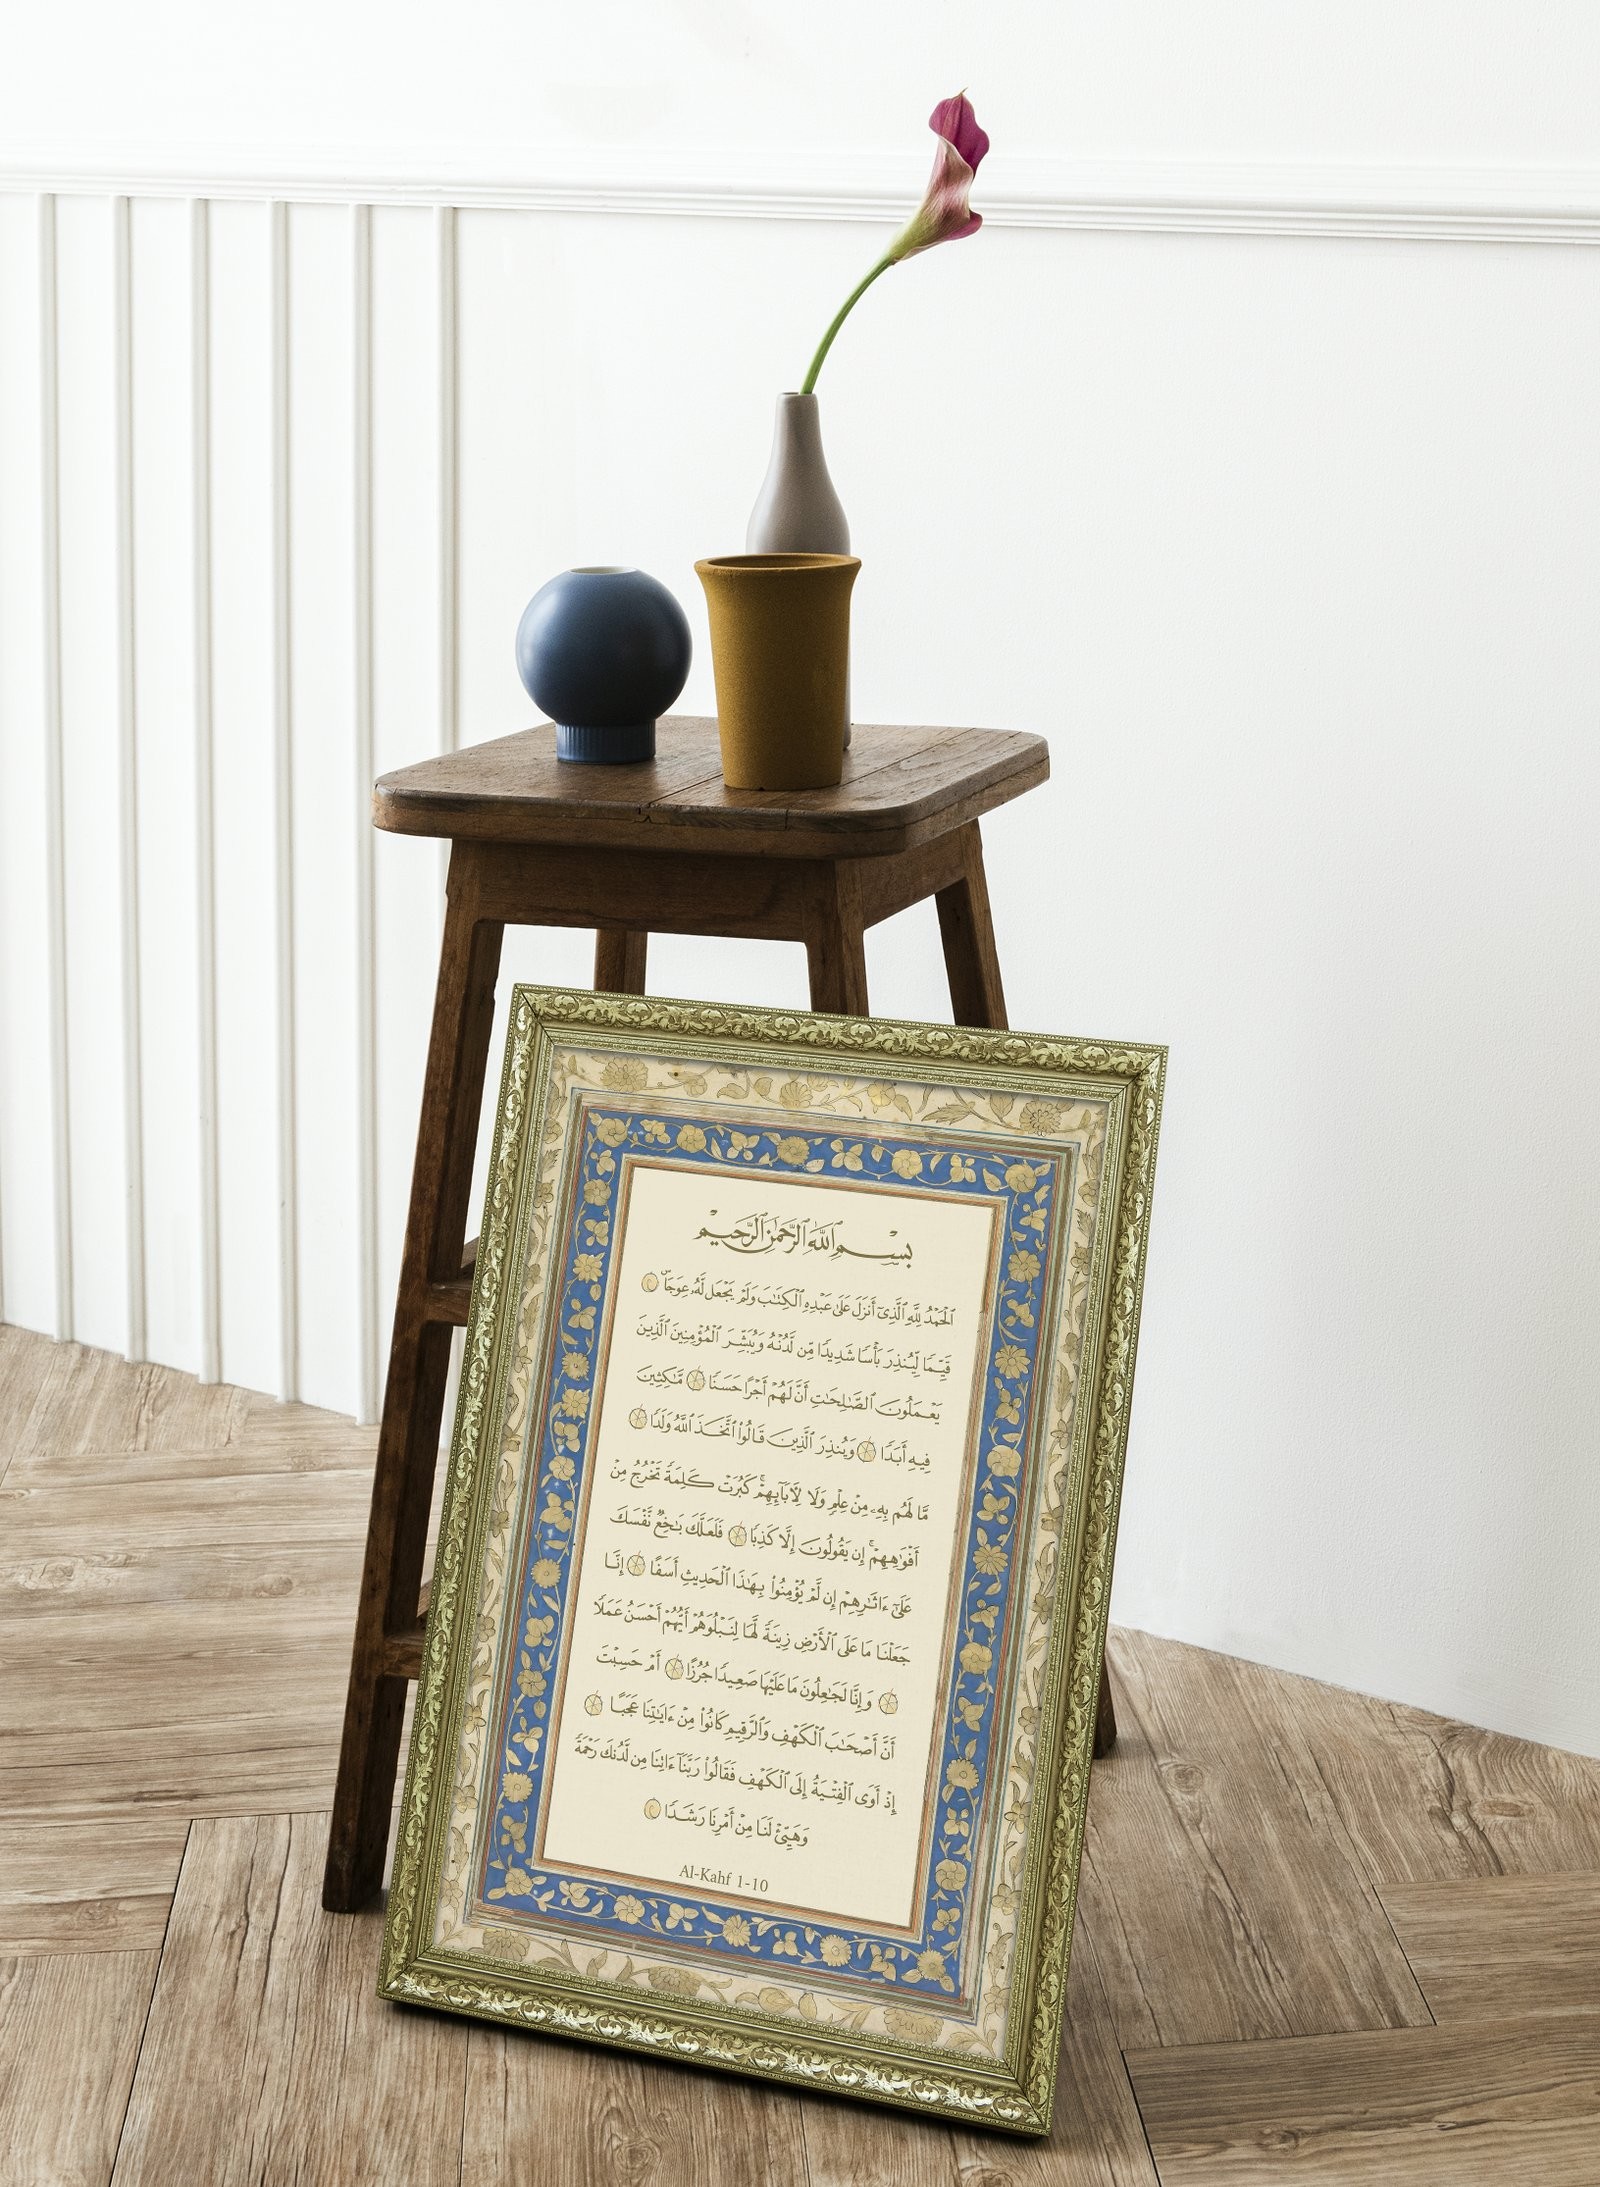 بِسْمِ ٱللَّهِ ٱلرَّحْمَٰنِ ٱلرَّحِيمِ
ٱلْحَمْدُ لِلَّهِ ٱلَّذِىٓ أَنزَلَ عَلَىٰ عَبْدِهِ ٱلْكِتَٰبَ وَلَمْ يَجْعَل لَّهُۥ عِوَجَاۜ
قَيِّمًا لِّيُنذِرَ بَأْسًا شَدِيدًا مِّن لَّدُنْهُ وَيُبَشِّرَ ٱلْمُؤْمِنِينَ ٱلَّذِينَ
يَعْمَلُونَ ٱلصَّٰلِحَٰتِ أَنَّ لَهُمْ أَجْرًا حَسَنًا مَّٰكِثِينَ
فِيهِ أَبَدًا وَيُنذِرَ ٱلَّذِينَ قَالُوا۟ ٱتَّخَذَ ٱللَّهُ وَلَدًا
مَّا لَهُم بِهِۦ مِنْ عِلْمٍ وَلَا لِءَابَآئِهِمْ ۚ كَبُرَتْ كَلِمَةً تَخْرُجُ مِنْ
أَفْوَٰهِهِمْ ۚ إِن يَقُولُونَ إِلَّا كَذِبًا فَلَعَلَّكَ بَٰخِعٌ نَّفْسَكَ
عَلَىٰٓ ءَاثَٰرِهِمْ إِن لَّمْ يُؤْمِنُوا۟ بِهَٰذَا ٱلْحَدِيثِ أَسَفًا إِنَّا
جَعَلْنَا مَا عَلَى ٱلْأَرْضِ زِينَةً لَّهَا لِنَبْلُوَهُمْ أَيُّهُمْ أَحْسَنُ عَمَلًا
وَإِنَّا لَجَٰعِلُونَ مَا عَلَيْهَا صَعِيدًا جُرُزًا أَمْ حَسِبْتَ
أَنَّ أَصْحَٰبَ ٱلْكَهْفِ وَٱلرَّقِيمِ كَانُوا۟ مِنْ ءَايَٰتِنَا عَجَبًا
إِذْ أَوَى ٱلْفِتْيَةُ إِلَى ٱلْكَهْفِ فَقَالُوا۟ رَبَّنَآ ءَاتِنَا مِن لَّدُنكَ رَحْمَةً
وَهَيِّئْ لَنَا مِنْ أَمْرِنَا رَشَدًا
Al-Kahf 1-10